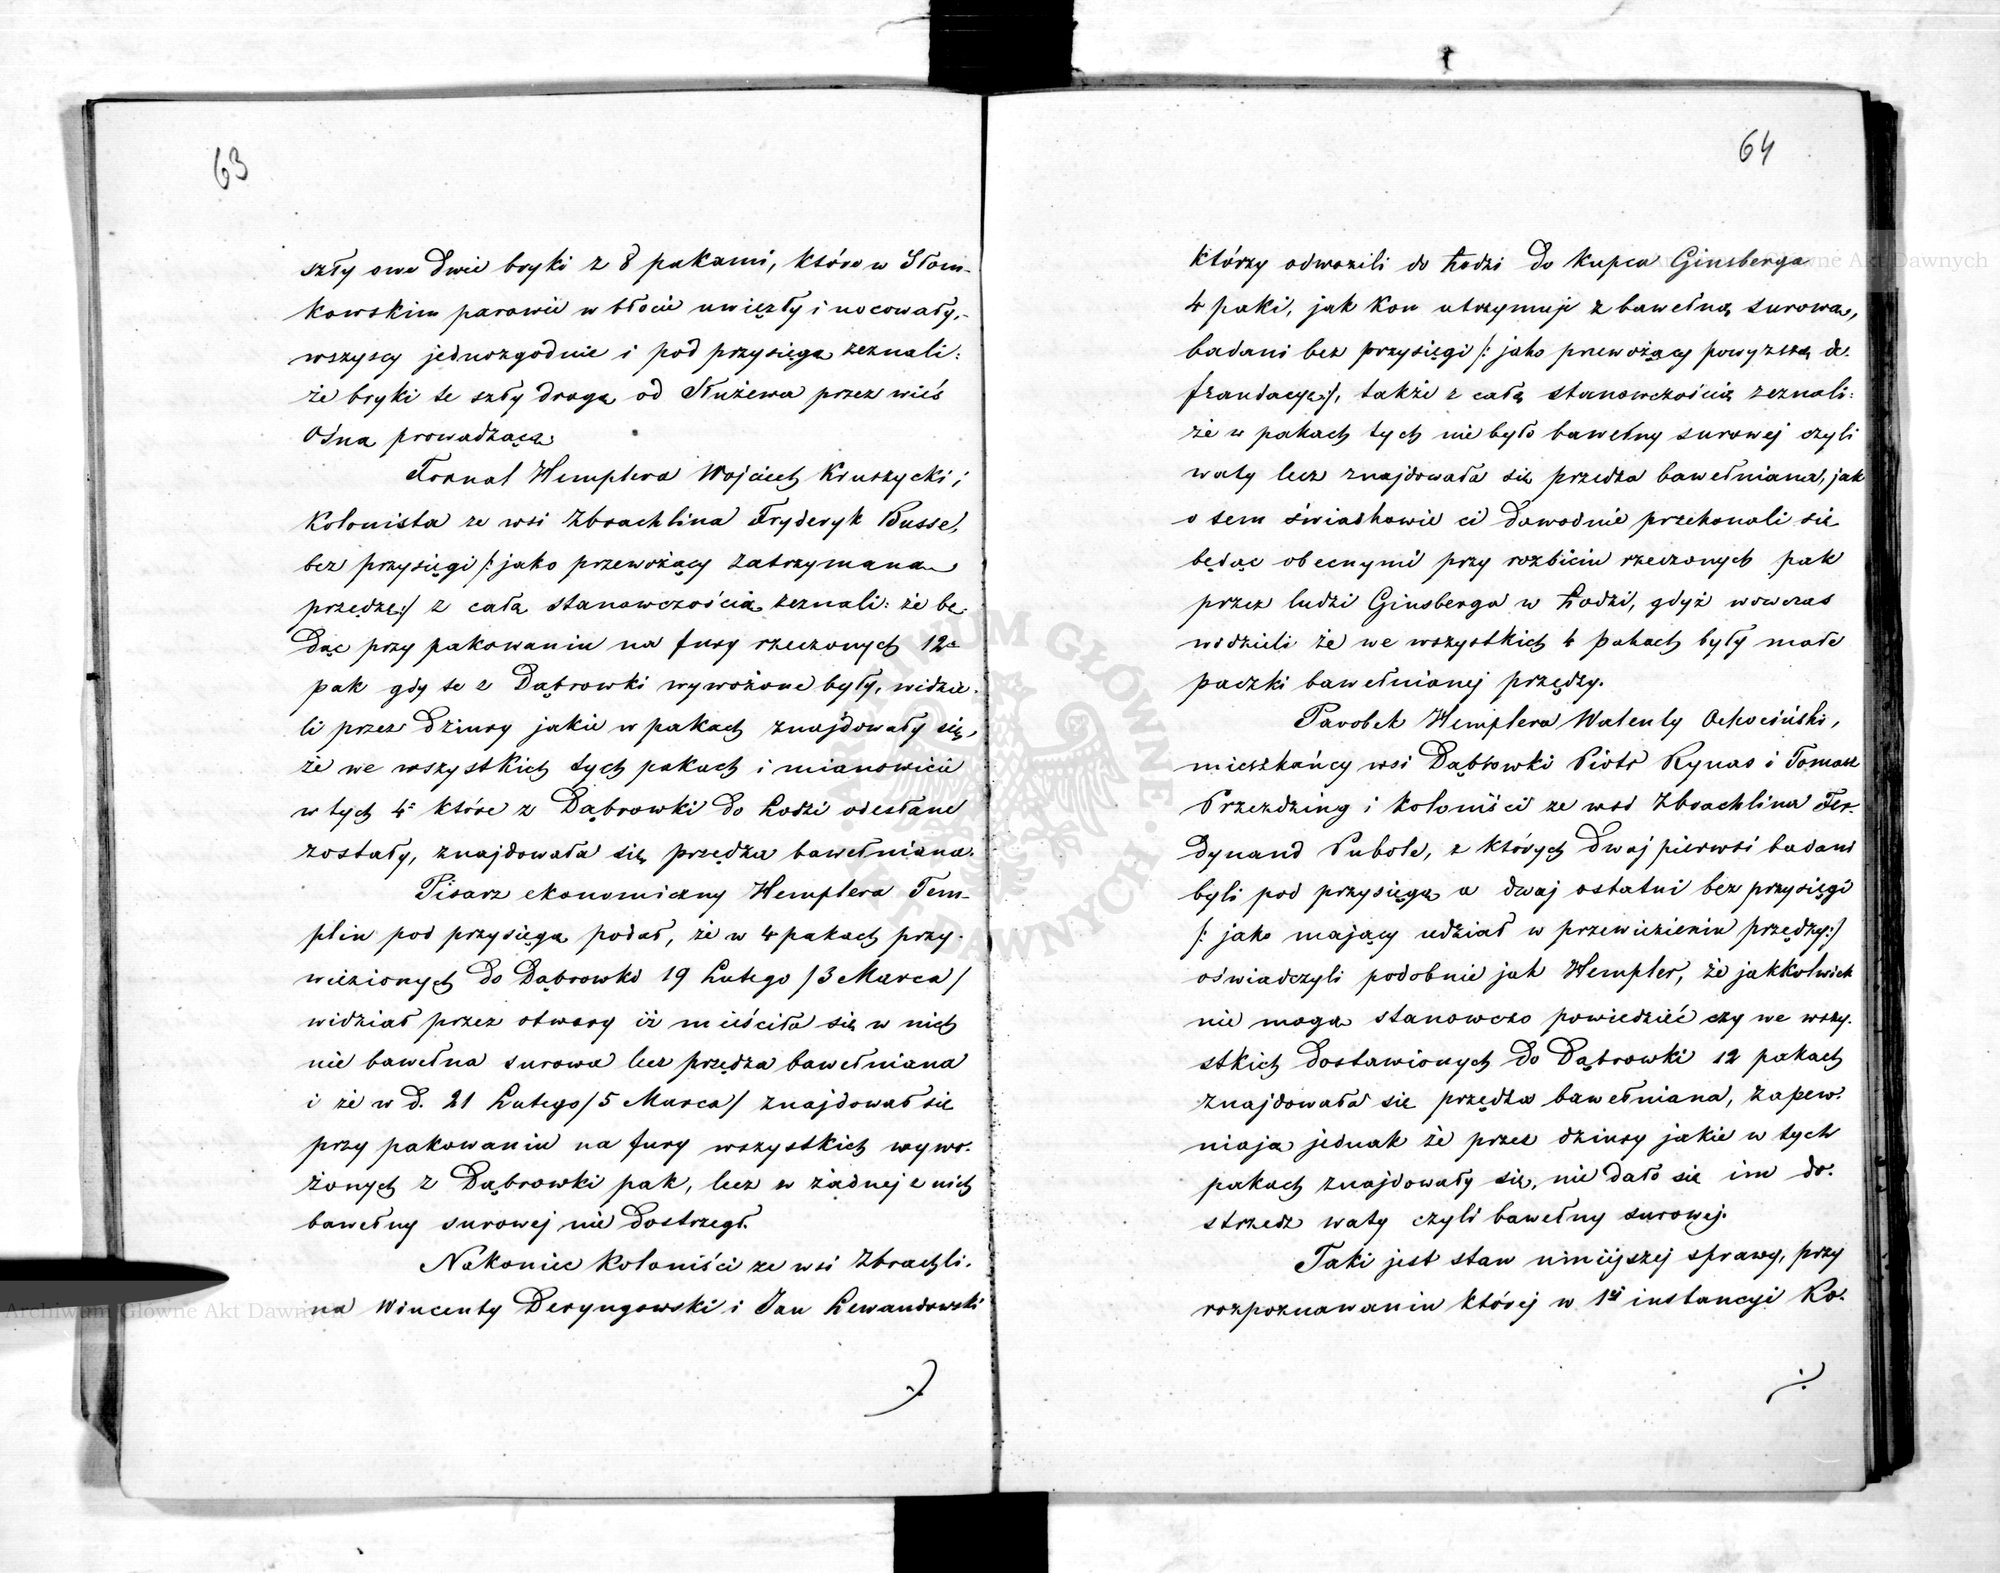 63
szły owe dwie bryki z 8 pakami, które w Słom-
kowskim parowie w błocie uwięzły i nocowały,-
wszyscy jednozgodnie i pod przysięgą zeznali:
że bryki te szły drogą od Służewa przez wieś
Ośna prowadzącą.
Fornal Hemplera Wojciech Kruszycki i
kolonista ze wsi Zbrachlina Fryderyk Busse,
bez przysięgi /: jako przewożący zatrzymaną
przędzę:/ z całą stanowczością zeznali: że bę-
dąc przy pakowaniu na fury rzeczonych 12u
pak gdy te z Dąbrowki wywożone były, widzie-
li przez dziury jakie w pakach znajdowały się,
że we wszystkich tych pakach i mianowicie
w tych 4ch które z Dąbrowki do Łodzi odesłane
zostały, znajdowała się przędza bawełniana.
Pisarz ekonomiczny Hemplera Tem-
plin pod przysięgą podał, że w 4 pakach przy-
wiezionych do Dąbrowki 19 Lutego /3 Marca/
widział przez otwory iż mieściła się w nich
nie bawełna surowa lecz przędza bawełniana
i że w d. 21 Lutego /5 Marca/ znajdował się
przy pakowaniu na fury wszystkich wywo-
żonych z Dąbrowki pak, lecz w żadnej z nich
bawełny surowej nie dostrzegł.
Nakoniec koloniści ze wsi Zbrachli-
na Wincenty Deryngowski i Jan Lewandowski
64
którzy odwozili do Łodzi do kupca Ginsberga
4 paki, jak Kon utrzymuje z bawełną surową,
badani bez przysięgi /: jako przewożący powyższą de-
fraudacyą:/, także z całą stanowczością zeznali:
że w pakach tych nie było bawełny surowej czyli
waty lecz znajdowała się przędza bawełniana, jak
o tem świadkowie ci dowodnie przekonali się
będąc obecnymi przy rozbiciu rzeczonych pak
przez ludzi Ginsberga w Łodzi, gdyż wowczas
widzieli że we wszystkich 4 pakach były małe
paczki bawełnianej przędzy.
Parobek Hemplera Walenty Ochociński,
mieszkańcy wsi Dąbrowki Piotr Rynas i Tomasz
Przezdzing i koloniści ze wsi Zbrachlina Fer-
dynand Pubole, z których dwaj pierwsi badani
byli pod przysięgą a dwaj ostatni bez przysięgi
/: jako mający udział w przewiezieniu przędzy:/
oświadczyli podobnie jak Hempler, że jakkolwiek
nie mogą stanowczo powiedzieć czy we wszy-
stkich dostawionych do Dąbrowki 12 pakach
znajdowała się przędza bawełniana, zapew-
niają jednak że przez dziury jakie w tych
pakach znajdowały się, nie dało się im do-
strzedz waty czyli bawełny surowej.
Taki jest stan niniejszej sprawy, przy
rozpoznawaniu której w 1ej instancyi Ko-